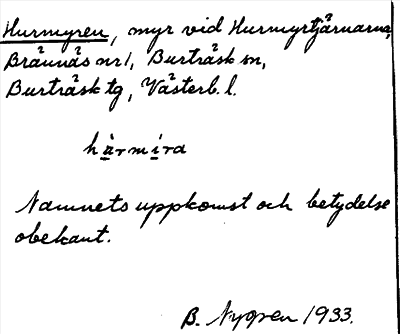 Hurmyren, myr vid Hurmyrtjärnarna,
Brännäs nr 1, Burträsk sn,
Burträsk tg, Västerb. l.
härmira
Namnets uppkomst och betydelse
obekant.
B. Nygren 1933.